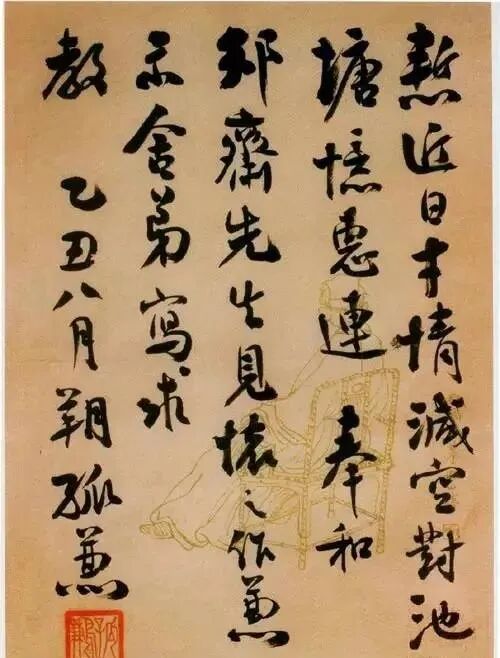 慙近日才情減空對池
塘憶惠連 奉和
邦齋先生見懷之作兼
示舍弟寫求
教 乙丑八月朔孤兼